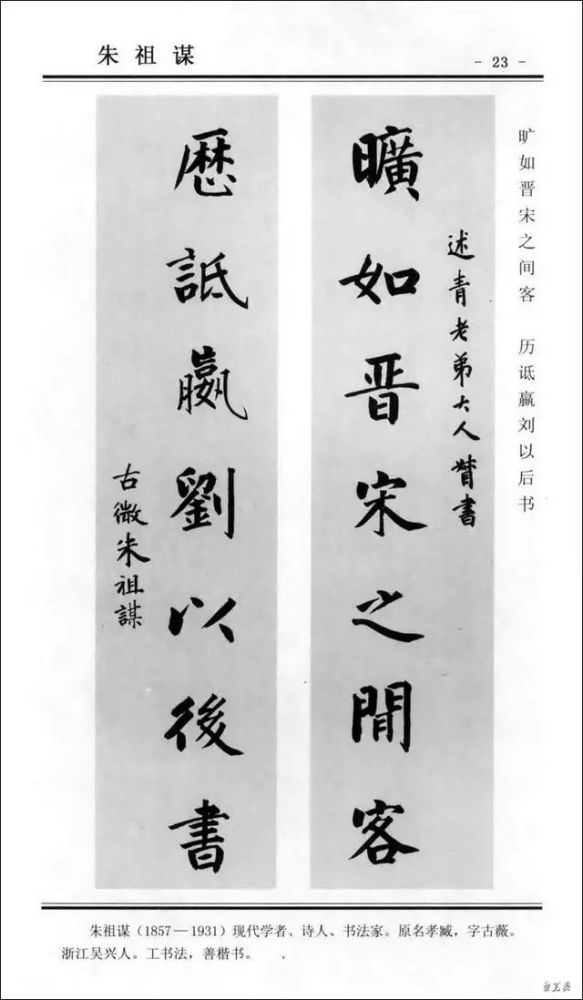 朱祖谋
- 23 -
旷如晋宋之间客　历诋嬴刘以后书
述青老弟大人 書
曠如晋宋之閒客
厯詆嬴劉以後書
古微朱祖謀
朱祖谋（1857—1931）现代学者、诗人、书法家。原名孝臧，字古薇。
浙江吴兴人。工书法，善楷书。